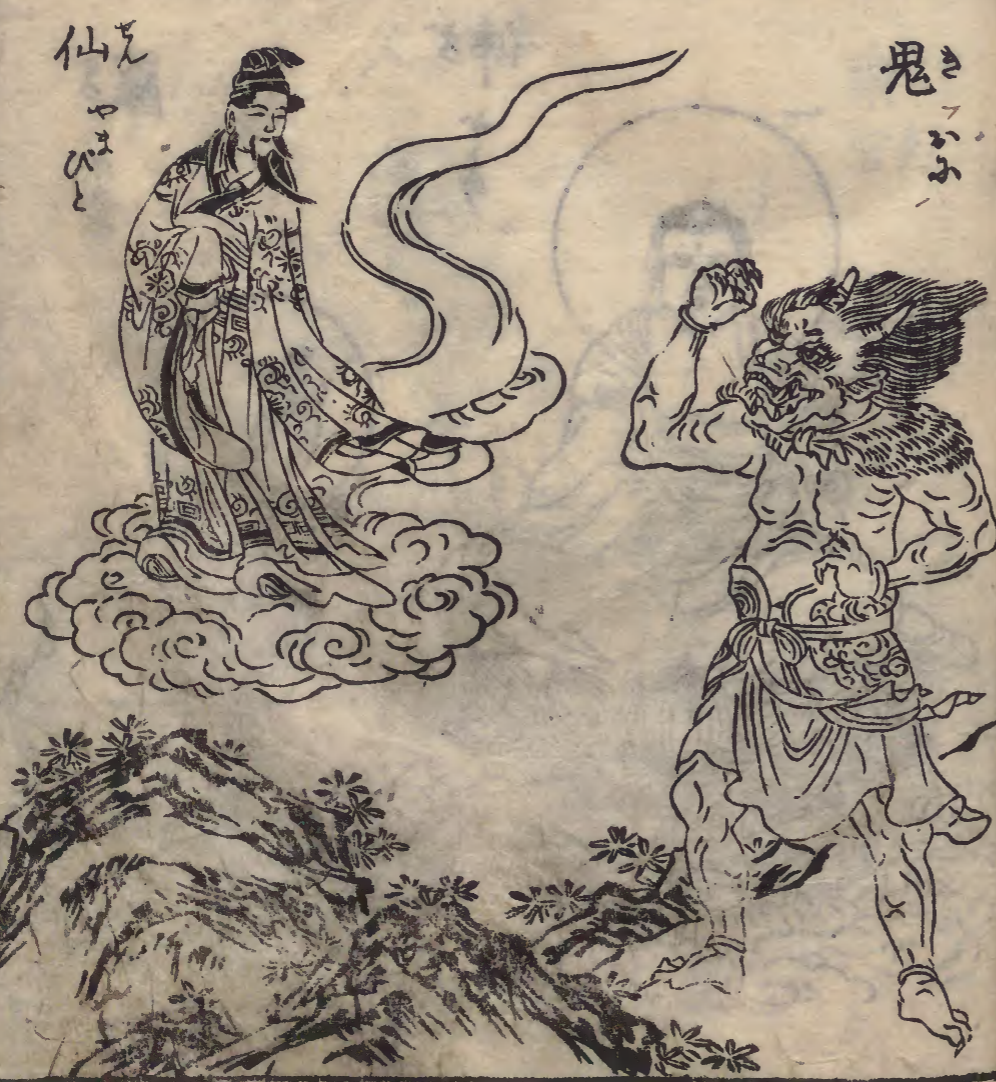 鬼 き
おに
仙 せん
やまびと